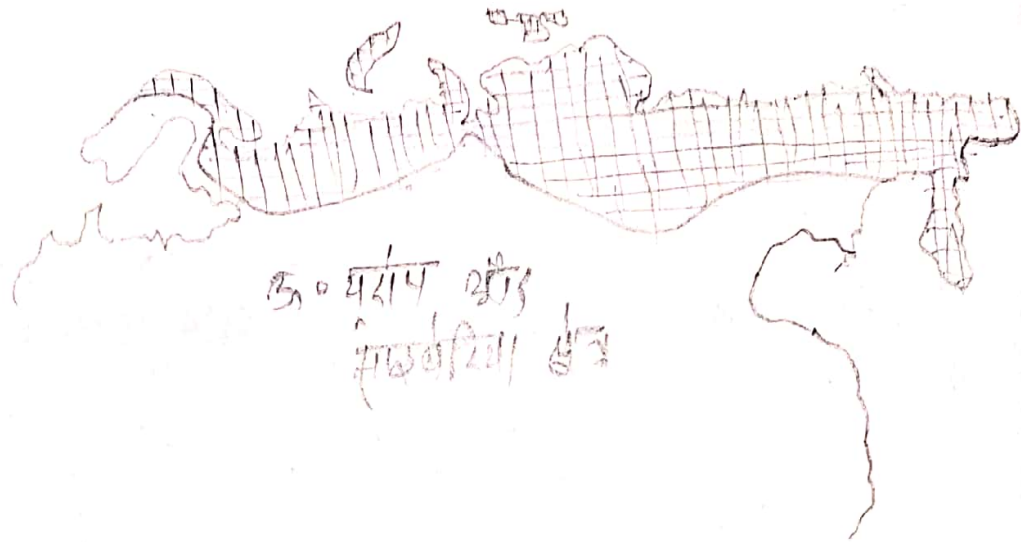 उ॰ यूरोप और
साइबेरिया क्षेत्र